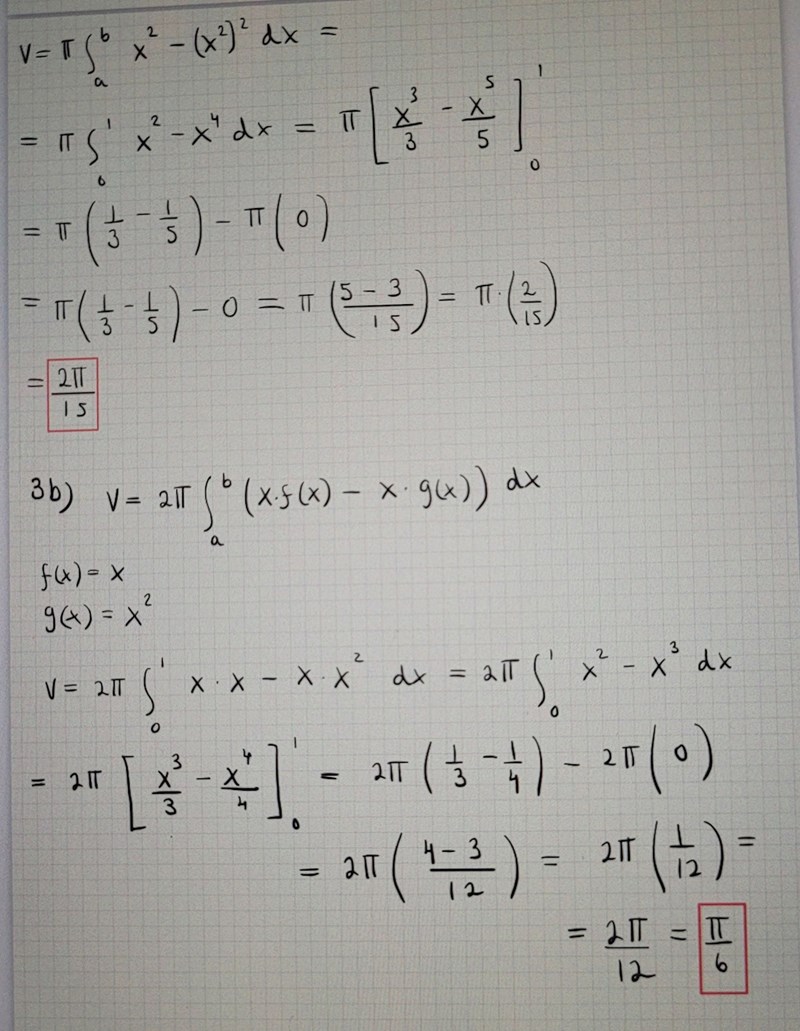 V = π ∫_a^b x² − (x²)² dx =
= π ∫_0^1 x² − x⁴ dx = π [x³/3 − x⁵/5]_0^1
= π (1/3 − 1/5) − π (0)
= π (1/3 − 1/5) − 0 = π ((5 − 3)/15) = π · (2/15)
= 2π/15
3b) V = 2π ∫_a^b (x·f(x) − x · g(x)) dx
f(x) = x
g(x) = x²
V = 2π ∫_0^1 x · x − x · x² dx = 2π ∫_0^1 x² − x³ dx
= 2π [x³/3 − x⁴/4]_0^1 = 2π (1/3 − 1/4) − 2π (0)
= 2π ((4 − 3)/12) = 2π (1/12) =
= 2π/12 = π/6